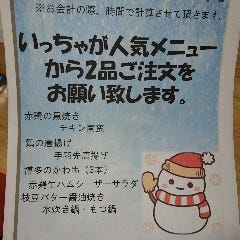 ※お会計の際、時間で計算させて頂きます。
いっちゃが人気メニュー
から2品ご注文を
お願い致します。
赤鶏の黒焼き
チキン南蛮
鶏の唐揚げ
手羽先唐揚げ
博多のかわ串（3本）
赤鶏生ハムシーザーサラダ
枝豆バター醤油焼き
水炊き鍋・もつ鍋